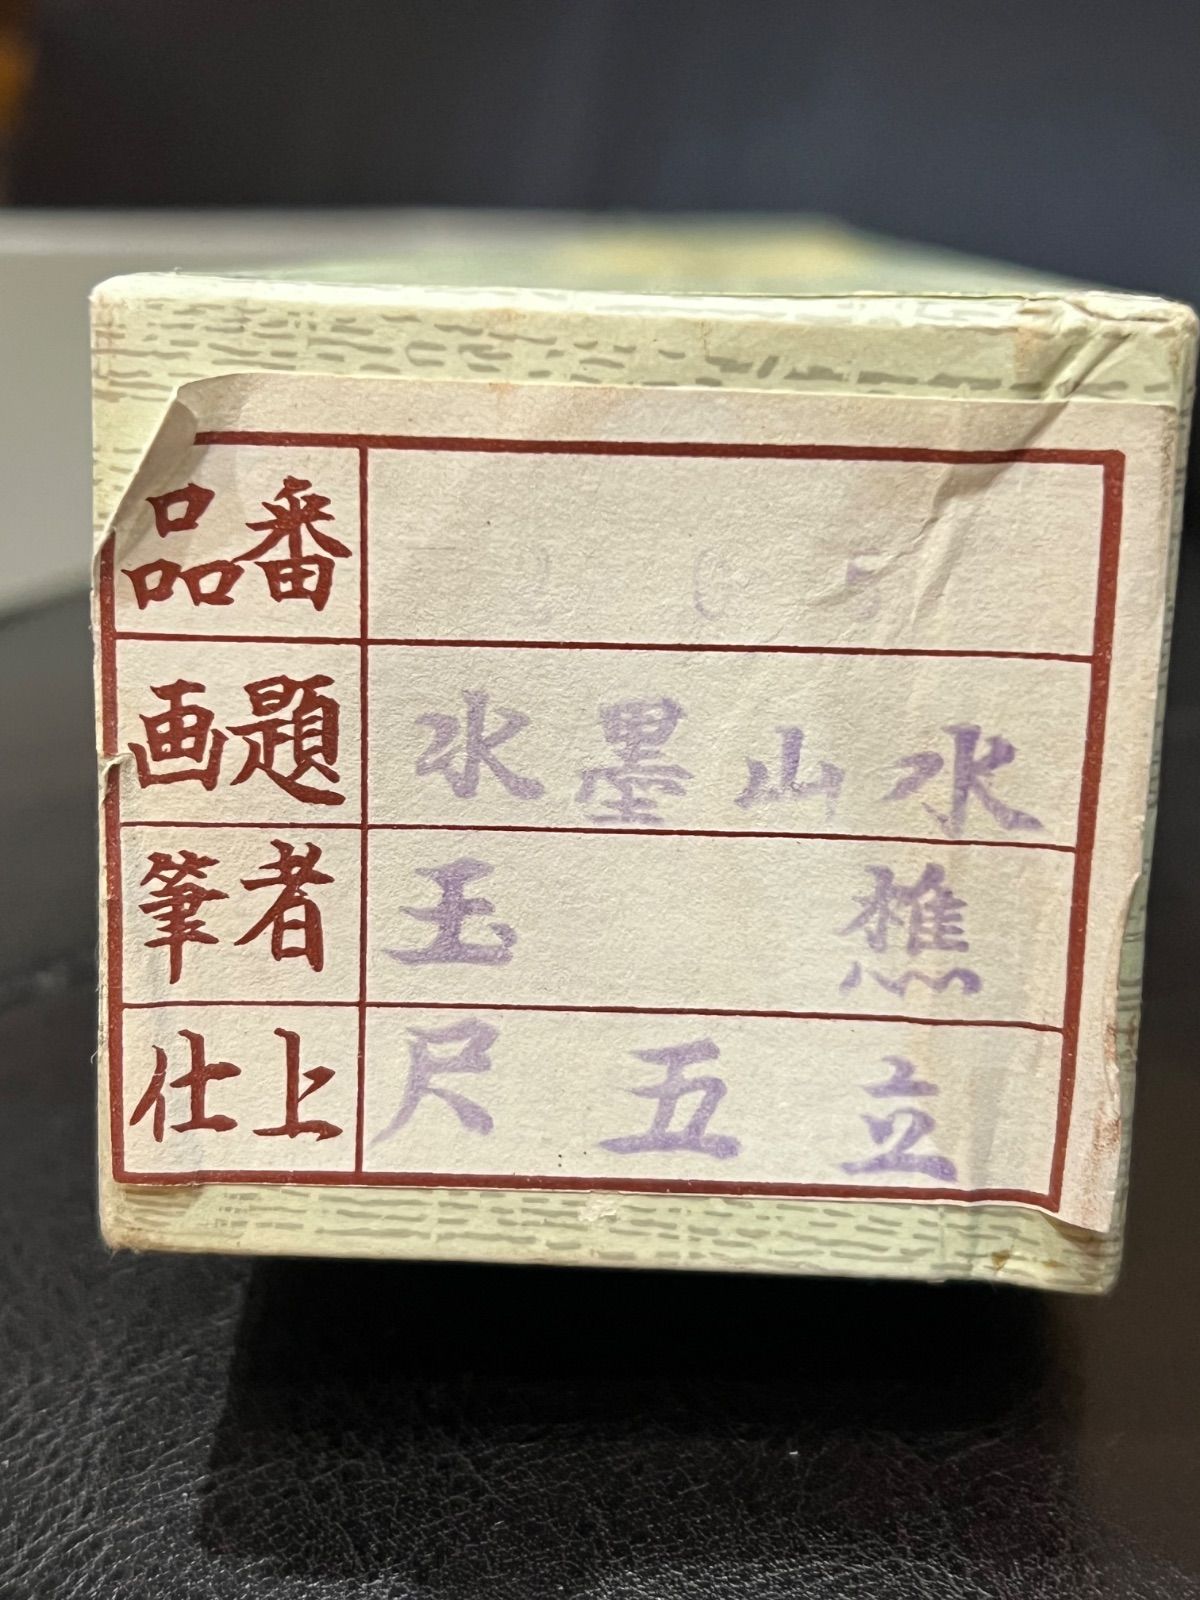 品番 05
画題 水墨山水
筆者 玉樵
仕上 尺五立